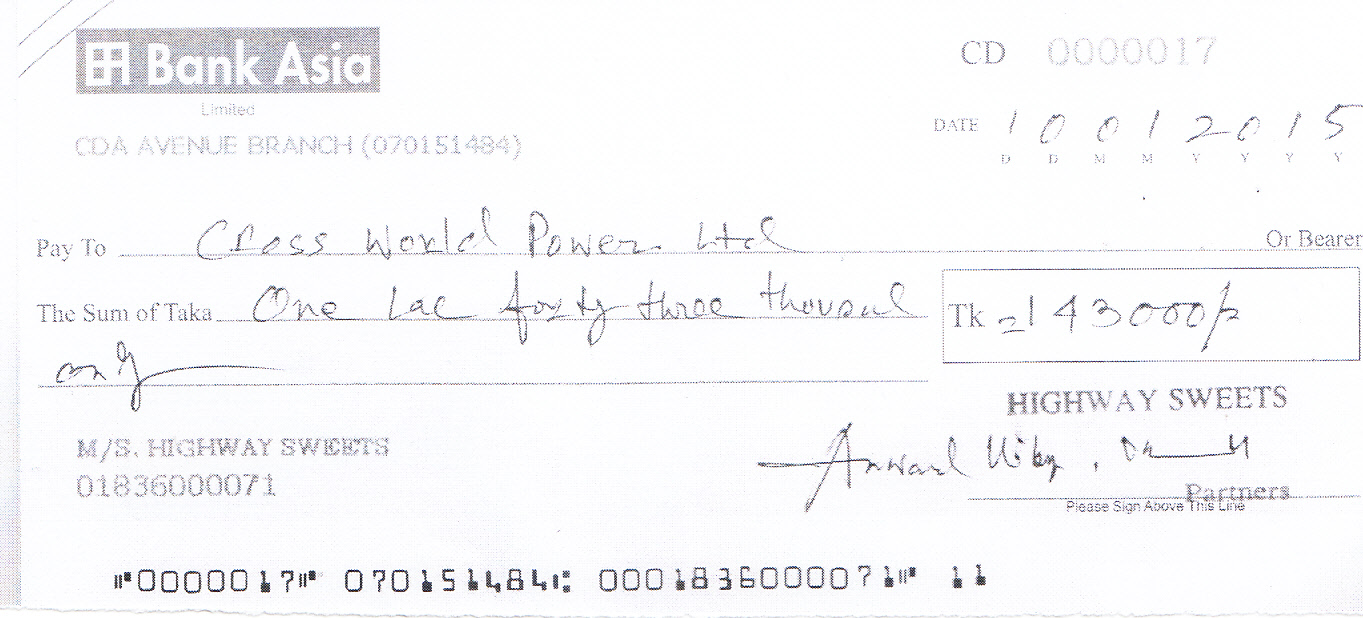 Bank Asia
Limited
CD 0000017
CDA AVENUE BRANCH (070151484)
DATE 1 0 0 1 2 0 1 5
D D M M Y Y Y Y
Pay To Cross World Power Ltd Or Bearer
The Sum of Taka One Lac forty three thousand
only
Tk =143000/=
HIGHWAY SWEETS
M/S. HIGHWAY SWEETS
01836000071
Anwarul
Partners
Please Sign Above This Line
⑈0000017⑈ 070151484⑆ 0001836000071⑈ 11